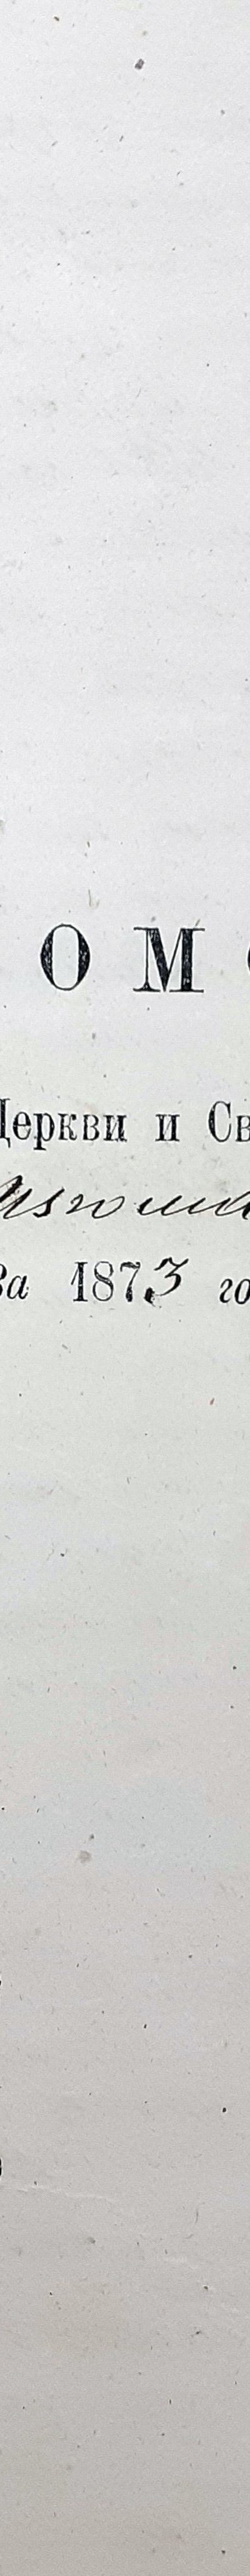 О М
Церкви и Св
За 1873 го